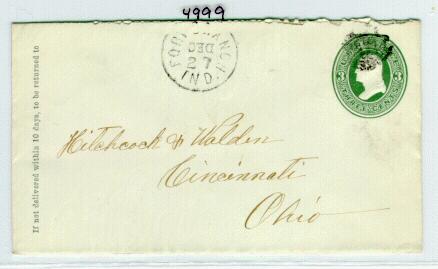 4999
FORT BRANCH
DEC
27
IND.
THREE CENTS
3
3
If not delivered within 10 days, to be returned to
Hitchcock & Walden
Cincinnati
Ohio